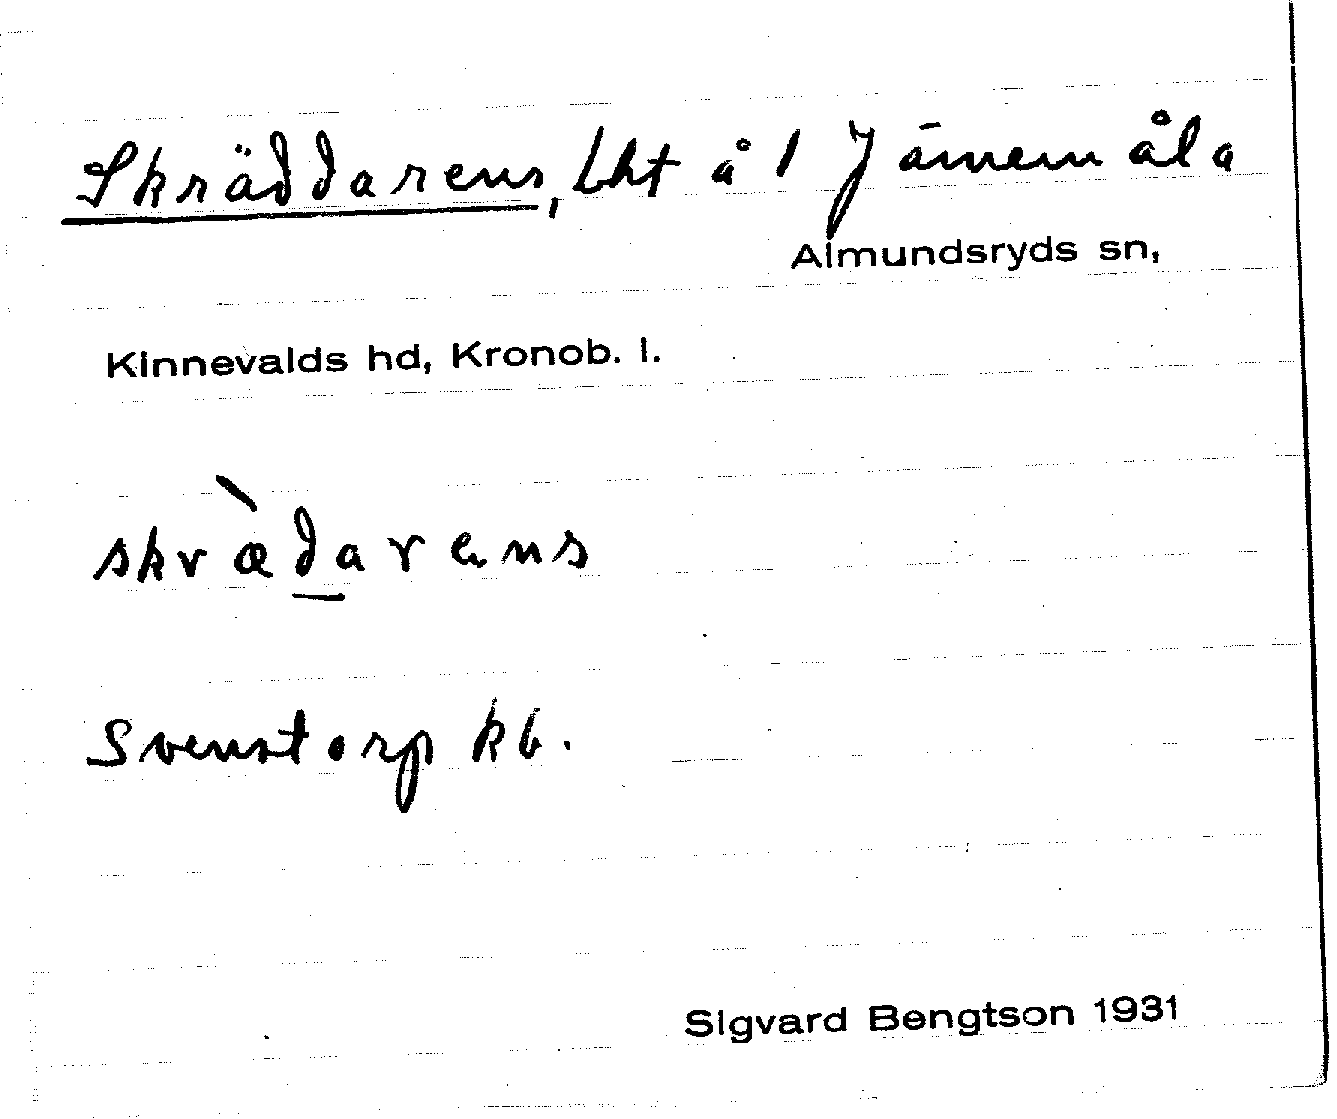 Skräddarens, Lht å 1 Jämnemåla
Almundsryds sn,
Kinnevalds hd, Kronob. l.
skræ̀d̲arens
Svenstorp kb.
Sigvard Bengtson 1931